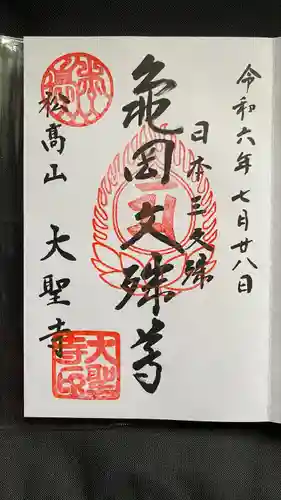 令和六年七月廿八日
日本三文殊
亀岡文殊尊
松高山
大聖寺
大聖寺印